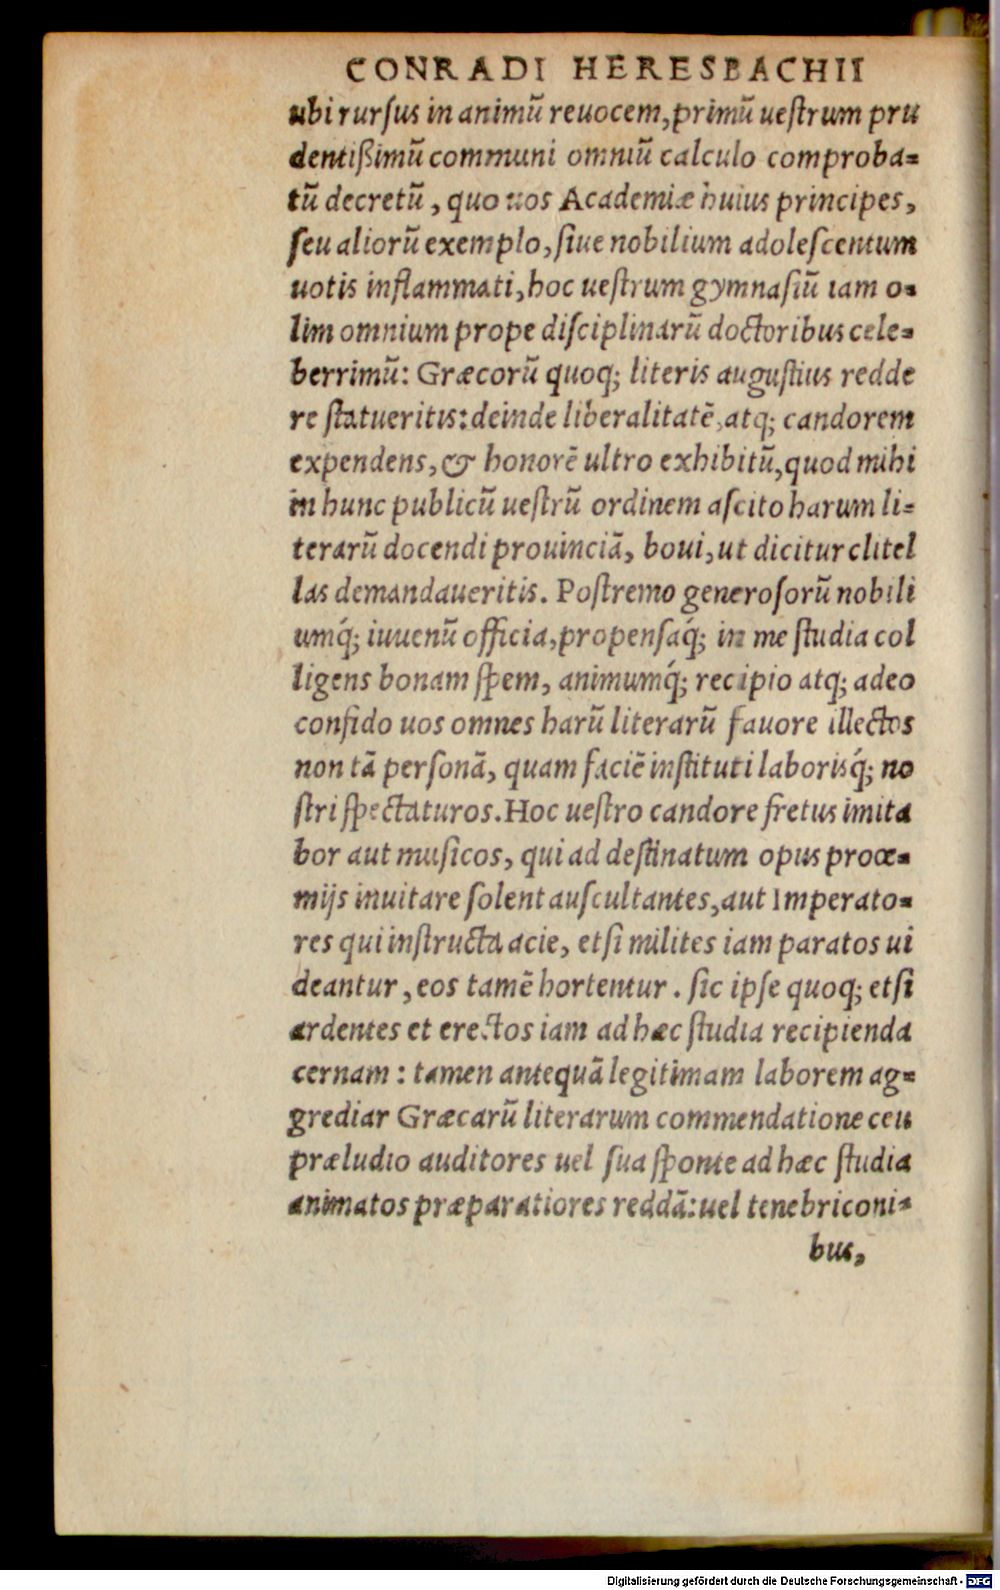 CONRADI HERESBACHII
ubi rursus in animũ reuocem, primũ uestrum pru
dentißimũ communi omniũ calculo comproba=
tũ decretũ, quo uos Academiæ huius principes,
seu aliorũ exemplo, siue nobilium adolescentum
uotis inflammati, hoc uestrum gymnasiũ iam o=
lim omnium prope disciplinarũ doctoribus cele=
berrimũ: Græcorũ quoq; literis augustius redde
re statueritis: deinde liberalitatẽ, atq; candorem
expendens, & honorẽ ultro exhibitũ, quod mihi
in hunc publicũ uestrũ ordinem ascito harum li=
terarũ docendi prouinciã, boui, ut dicitur clitel
las demandaueritis. Postremo generosorũ nobili
umq́; iuuenũ officia, propensaq́; in me studia col
ligens bonam spem, animumq́; recipio atq; adeo
confido uos omnes harũ literarũ fauore illectos
non tã personã, quam faciẽ instituti laborisq́; no
stri spectaturos. Hoc uestro candore fretus imita
bor aut musicos, qui ad destinatum opus proœ=
mijs inuitare solent auscultantes, aut Imperato=
res qui instructa acie, etsi milites iam paratos ui
deantur, eos tamẽ hortentur. sic ipse quoq; etsi
ardentes et erectos iam ad hæc studia recipienda
cernam: tamen antequã legitimam laborem ag=
grediar Græcarũ literarum commendatione ceu
præludio auditores uel sua sponte ad hæc studia
animatos præparatiores reddã: uel tenebriconi=
bus,
Digitalisierung gefördert durch die Deutsche Forschungsgemeinschaft - DFG